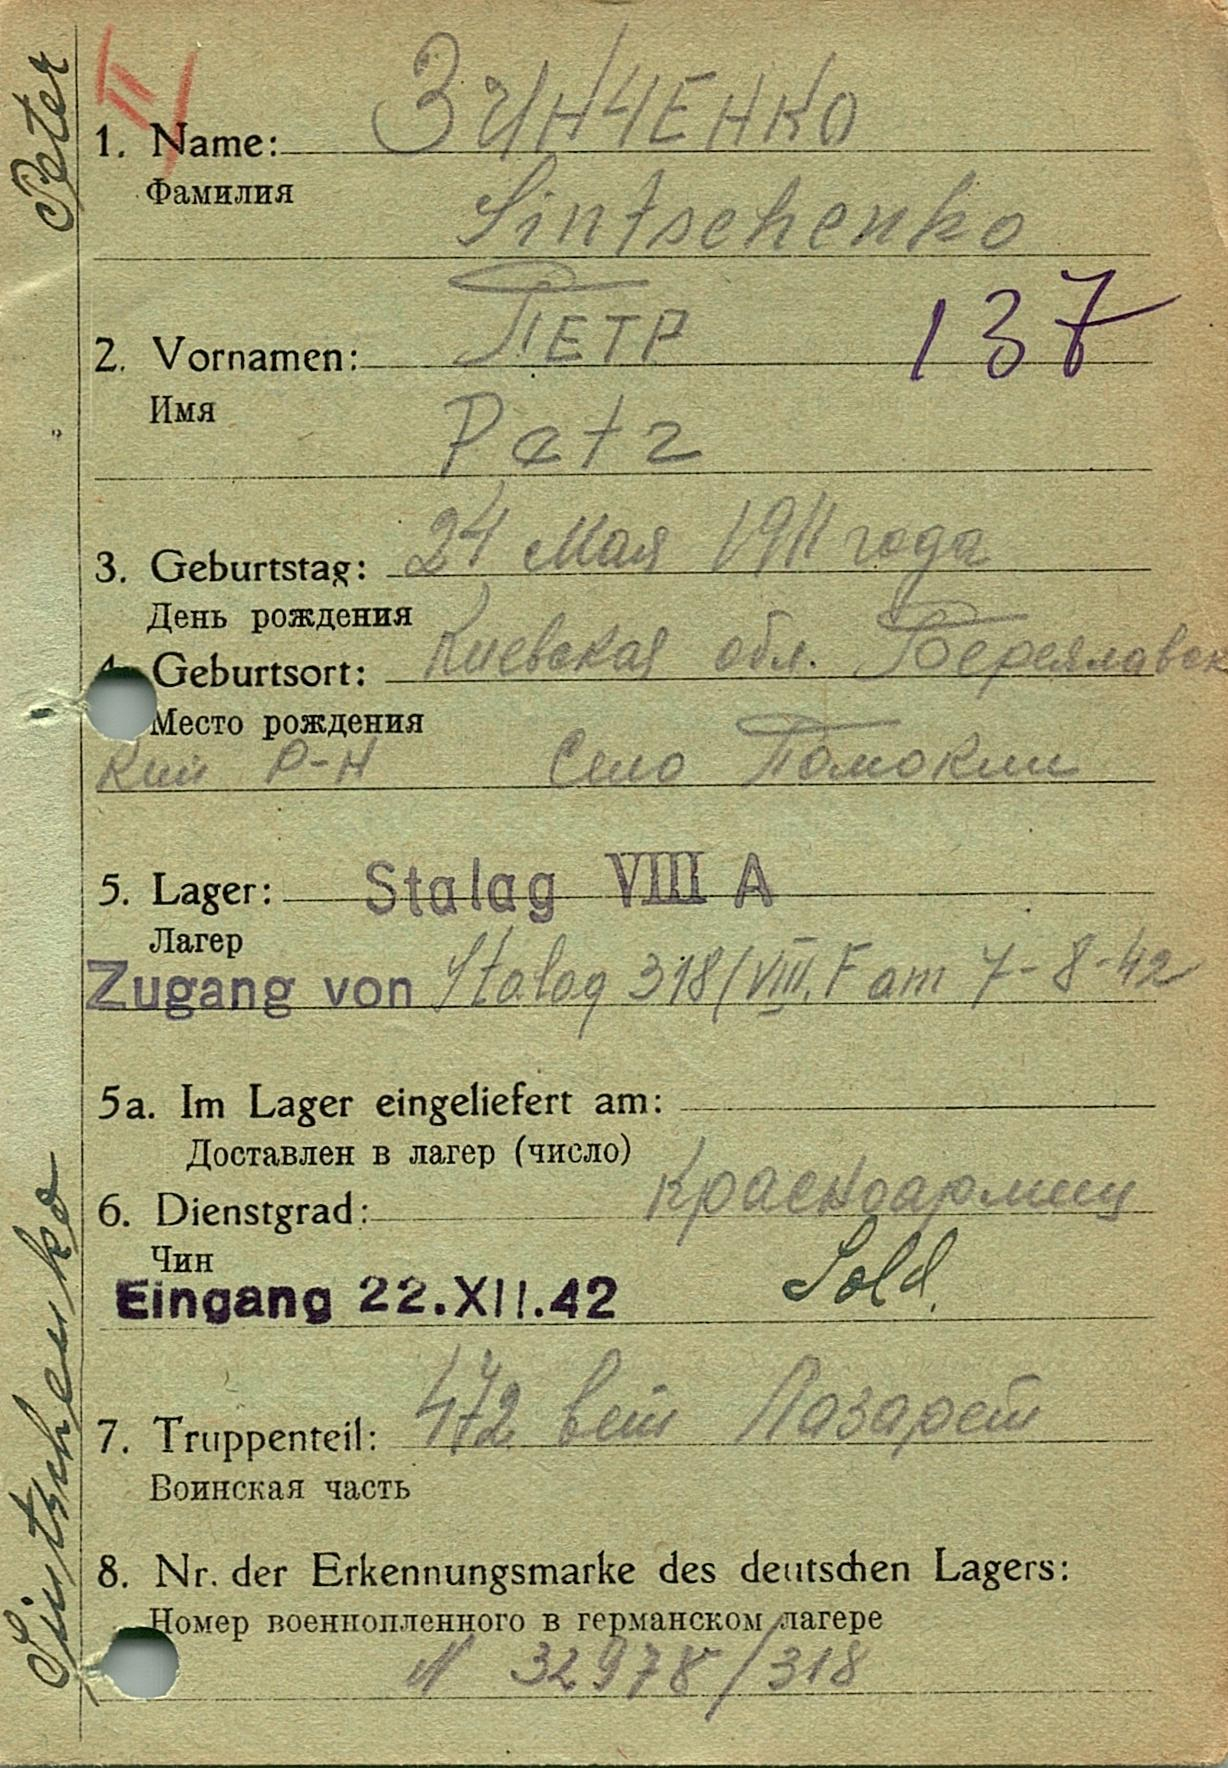 II
ЗИНЧЕНКО
1. Name:
Фамилия
Sintschenko
ПЕТР
137
2. Vornamen:
Имя
Petr
3. Geburtstag: 24 Мая 1911 года
День рождения
4. Geburtsort: Киевская обл. Переяславс
Место рождения
кий Р-Н Село Помокли
5. Lager: Stalag VIII A
Лагер
Zugang von Stalag 318/VIII.F am 7-8-42
5a. Im Lager eingeliefert am:
Доставлен в лагер (число)
6. Dienstgrad: Красноармеец
Чин
Sold.
Eingang 22.XII.42
7. Truppenteil: 472 вет Лазарет
Воинская часть
8. Nr. der Erkennungsmarke des deutschen Lagers:
Номер военнопленного в германском лагере
N 32978/318
Sintschenko Peter